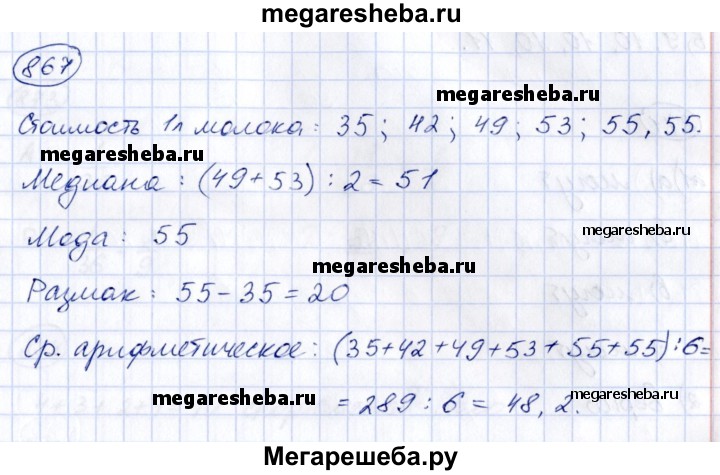 megaresheba.ru
867
megaresheba.ru
Стоимость 1л молока: 35; 42; 49; 53; 55, 55.
megaresheba.ru
Медиана: (49+53):2=51
Мода: 55
megaresheba.ru
megaresheba.ru
Размах: 55-35=20
Ср. арифметическое: (35+42+49+53+55+55):6=
megaresheba.ru
megaresheba.ru
=289:6=48,2.
Мегарешеба.ру